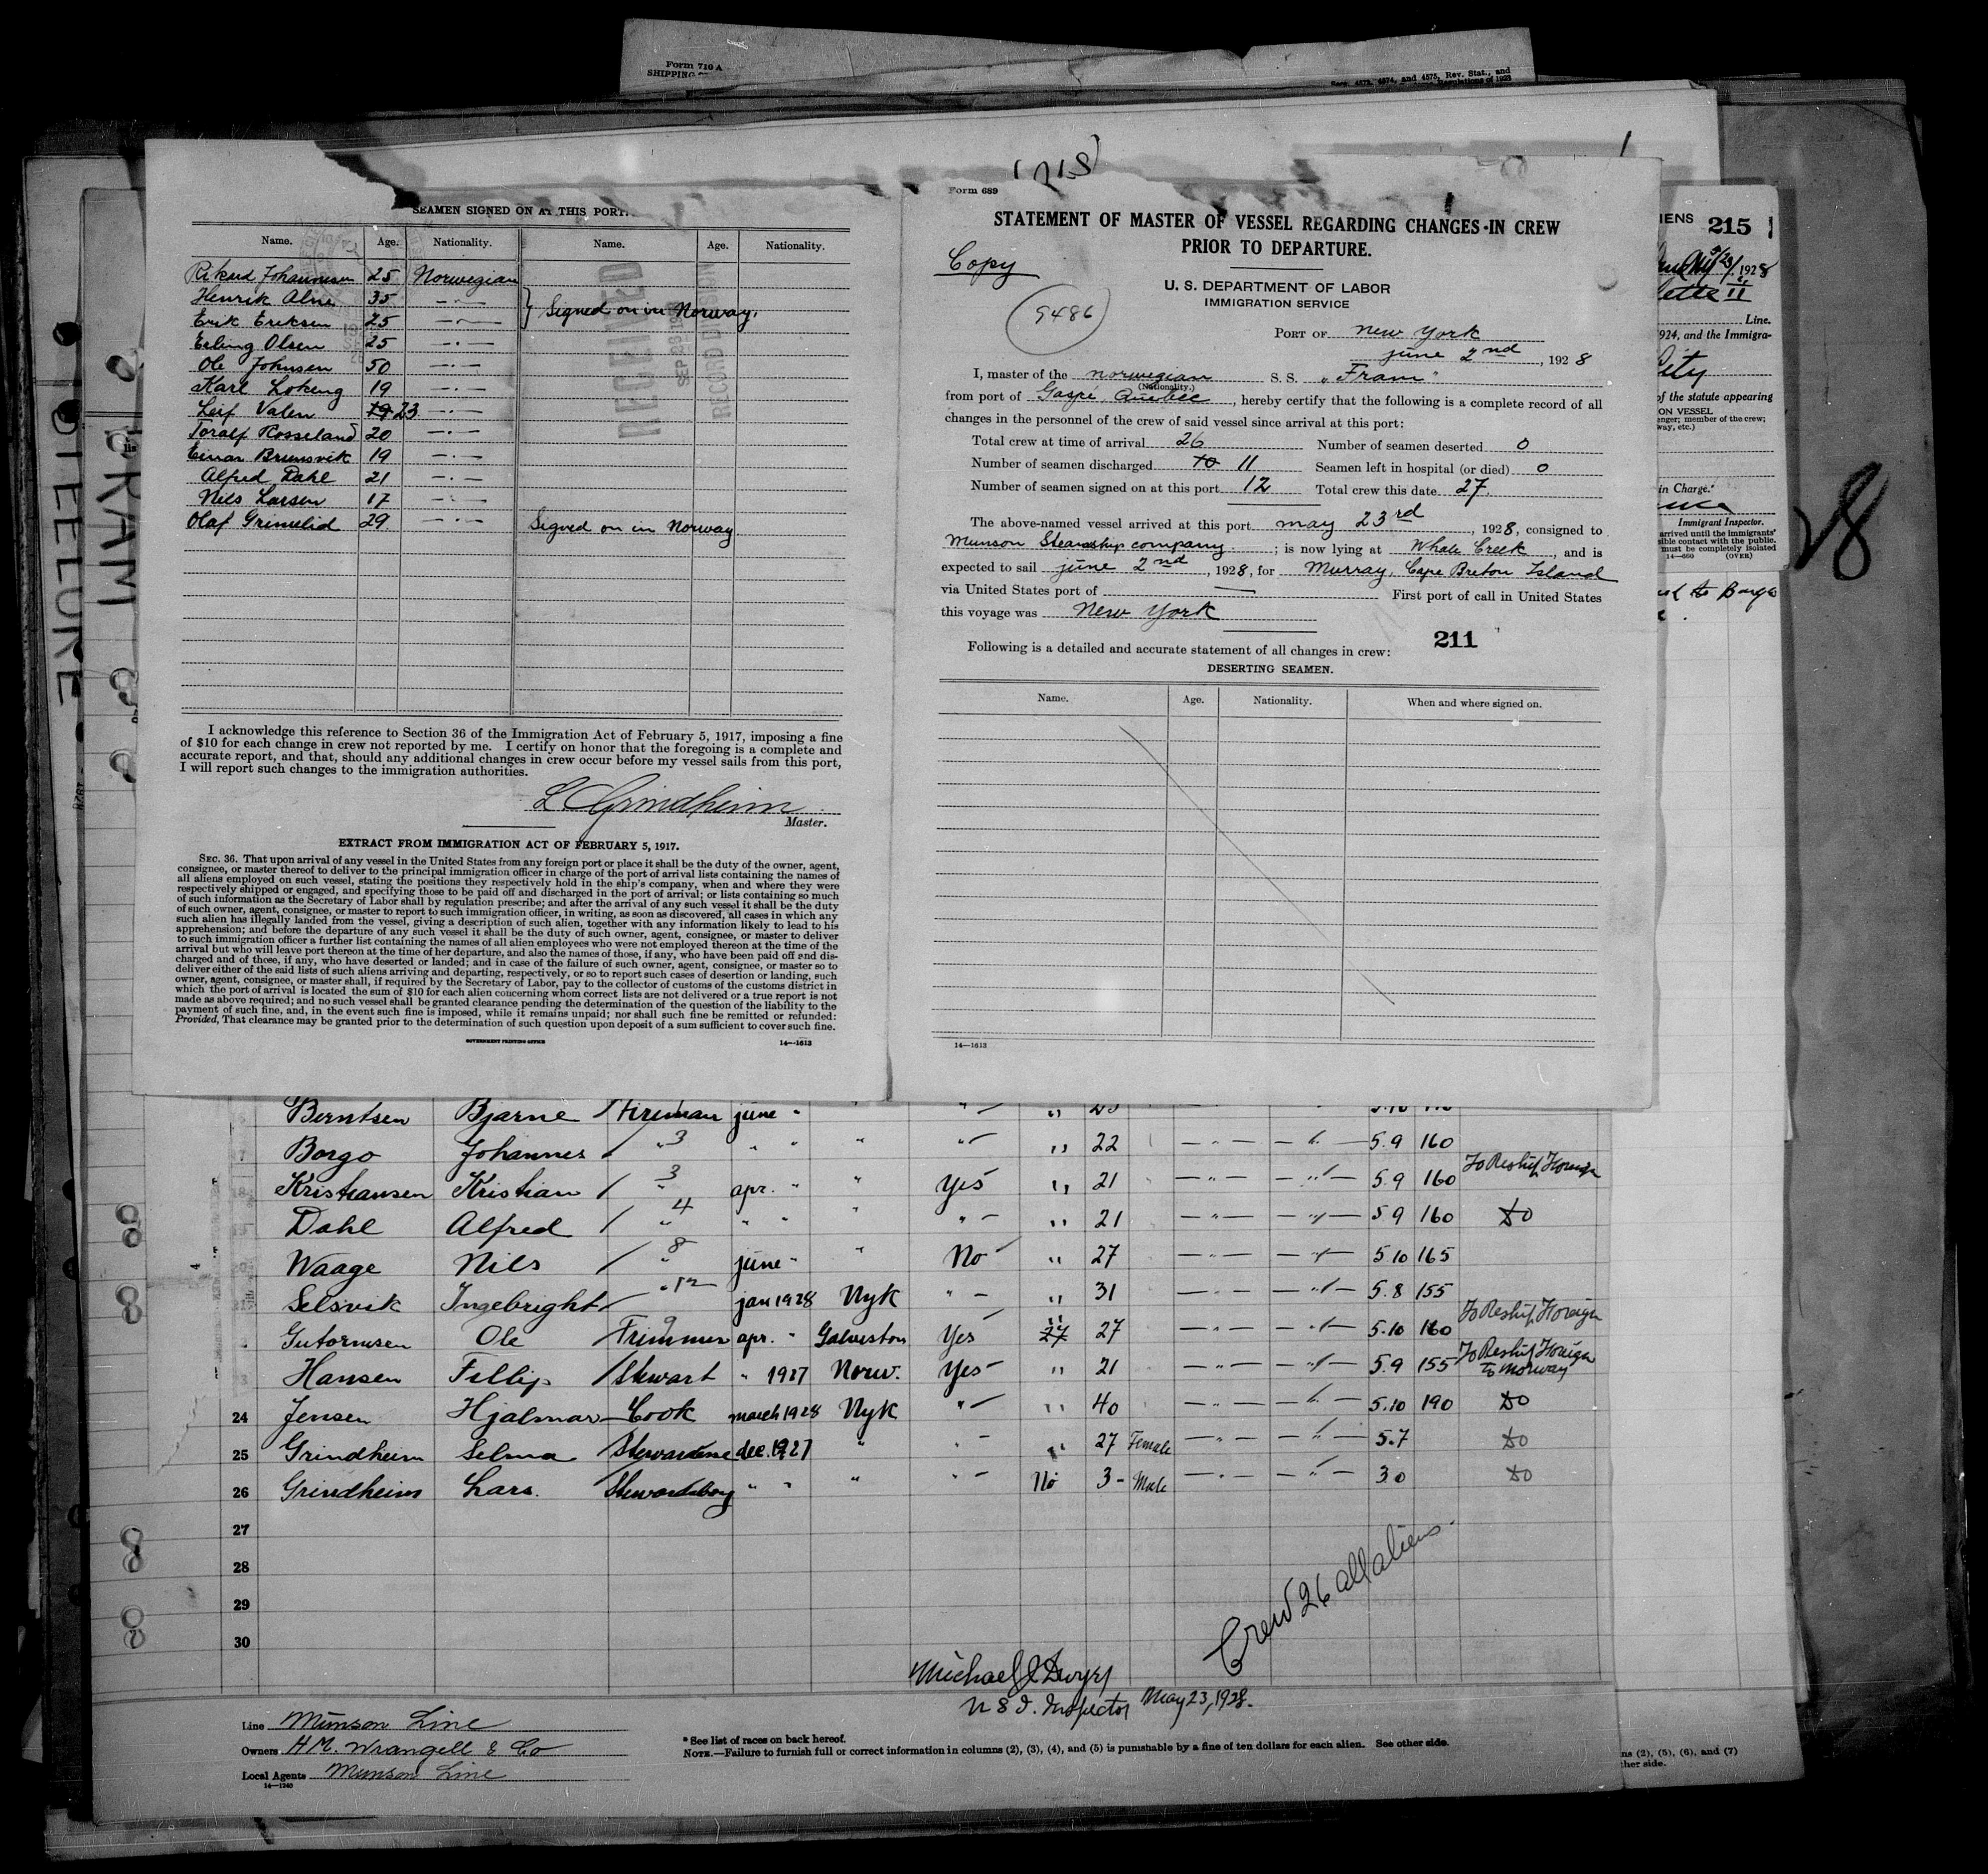 Form 710 A
SHIPPING
4573, 4574, and 4575, Rev. Stat., and
Regulations of 1923
SEAMEN SIGNED ON AT THIS PORT.
Name. Age. Nationality. Name. Age. Nationality.
Rikard Johannesen 25 Norwegian
Henrik Alne 35 — " —
Erik Eriksen 25 — " — } Signed on in Norway.
Erling Olsen 25 — " —
Ole Johnsen 50 — " —
Karl Lokeng 19 — " —
Leif Valen 19 23 — " —
Toralf Rosseland 20 — " —
Einar Brunsvik 19 — " —
Alfred Dahl 21 — " —
Nils Larsen 17 — " —
Olaf Grimelid 29 — " — Signed on in Norway
RECEIVED
SEP 26 1928
RECORD DIVISION
I acknowledge this reference to Section 36 of the Immigration Act of February 5, 1917, imposing a fine
of $10 for each change in crew not reported by me. I certify on honor that the foregoing is a complete and
accurate report, and that, should any additional changes in crew occur before my vessel sails from this port,
I will report such changes to the immigration authorities.
L Grindheim
Master.
EXTRACT FROM IMMIGRATION ACT OF FEBRUARY 5, 1917.
SEC. 36. That upon arrival of any vessel in the United States from any foreign port or place it shall be the duty of the owner, agent,
consignee, or master thereof to deliver to the principal immigration officer in charge of the port of arrival lists containing the names of
all aliens employed on such vessel, stating the positions they respectively hold in the ship's company, when and where they were
respectively shipped or engaged, and specifying those to be paid off and discharged in the port of arrival; or lists containing so much
of such information as the Secretary of Labor shall by regulation prescribe; and after the arrival of any such vessel it shall be the duty
of such owner, agent, consignee, or master to report to such immigration officer, in writing, as soon as discovered, all cases in which any
such alien has illegally landed from the vessel, giving a description of such alien, together with any information likely to lead to his
apprehension; and before the departure of any such vessel it shall be the duty of such owner, agent, consignee, or master to deliver
to such immigration officer a further list containing the names of all alien employees who were not employed thereon at the time of the
arrival but who will leave port thereon at the time of her departure, and also the names of those, if any, who have been paid off and dis-
charged and of those, if any, who have deserted or landed; and in case of the failure of such owner, agent, consignee, or master so to
deliver either of the said lists of such aliens arriving and departing, respectively, or so to report such cases of desertion or landing, such
owner, agent, consignee, or master shall, if required by the Secretary of Labor, pay to the collector of customs of the customs district in
which the port of arrival is located the sum of $10 for each alien concerning whom correct lists are not delivered or a true report is not
made as above required; and no such vessel shall be granted clearance pending the determination of the question of the liability to the
payment of such fine, and, in the event such fine is imposed, while it remains unpaid; nor shall such fine be remitted or refunded:
Provided, That clearance may be granted prior to the determination of such question upon deposit of a sum sufficient to cover such fine.
GOVERNMENT PRINTING OFFICE 14—1613
Form 689
STATEMENT OF MASTER OF VESSEL REGARDING CHANGES IN CREW
PRIOR TO DEPARTURE.
Copy
U. S. DEPARTMENT OF LABOR
IMMIGRATION SERVICE
9486
PORT OF New York
June 2nd, 1928
I, master of the norwegian S. S. "Fram"
(Nationality.)
from port of Gaspé, Quebec, hereby certify that the following is a complete record of all
changes in the personnel of the crew of said vessel since arrival at this port:
Total crew at time of arrival 26 Number of seamen deserted 0
Number of seamen discharged 10 11 Seamen left in hospital (or died) 0
Number of seamen signed on at this port 12 Total crew this date 27.
The above-named vessel arrived at this port may 23rd, 1928, consigned to
Munson Steamship company; is now lying at Whale Creek, and is
expected to sail june 2nd, 1928, for Murray, Cape Breton Island
via United States port of — First port of call in United States
this voyage was New York
211
Following is a detailed and accurate statement of all changes in crew:
DESERTING SEAMEN.
Name. Age. Nationality. When and where signed on.
14—1613
IENS 215
5/23/, 1928
II
Line.
924, and the Immigra-
City
of the statute appearing
ON VESSEL
enger; member of the crew;
way, etc.)
in Charge.
Immigrant Inspector.
arrived until the immigrants'
sible contact with the public.
must be completely isolated
14—660 (OVER)
to Barge
28
STEELURE
FRAM
Berntsen Bjarne Fireman june "
Borgo Johannes " 3 " " " " " 22 — " — — " — 5.9 160
Kristiansen Kristian " 3 apr. " " Yes " 21 — " — — " — 5 9 160 To Reship Foreign
Dahl Alfred " 4 " " " " " 21 — " — — " — 5 9 160 Do
Waage Nils " 8 june " " No " 27 — " — — " — 5 10 165
Selsvik Ingebright " 12 jan 1928 Nyk " " 31 — " — — " — 5.8 155
Gutormsen Ole Trimmer 9 apr. " Galveston Yes 27 27 — " — — " — 5.10 160 To Reship Foreign
Hansen Fillip Stewart " 1927 Norw. Yes " 21 — " — — " — 5.9 155 To Reship Foreign To Norway
24 Jensen Hjalmar Cook march 1928 Nyk " " 40 — " — — " — 5.10 190 Do
25 Grindheim Selma Stewardene dec. 1927 " " " 27 Female — " — — " — 5.7 Do
26 Grindheim Lars. Stewardsboy " " " " No 3- Male — " — — " — 3 0 Do
27
28
29
30
Crew 26 all aliens.
Michael J Dwyer
U S I. Inspector May 23, 1928.
Line Munson Line
Owners H M. Wrangell & Co
Local Agents Munson Line
14—1240
* See list of races on back hereof.
NOTE.—Failure to furnish full or correct information in columns (2), (3), (4), and (5) is punishable by a fine of ten dollars for each alien. See other side.
ns (2), (5), (6), and (7)
ther side.